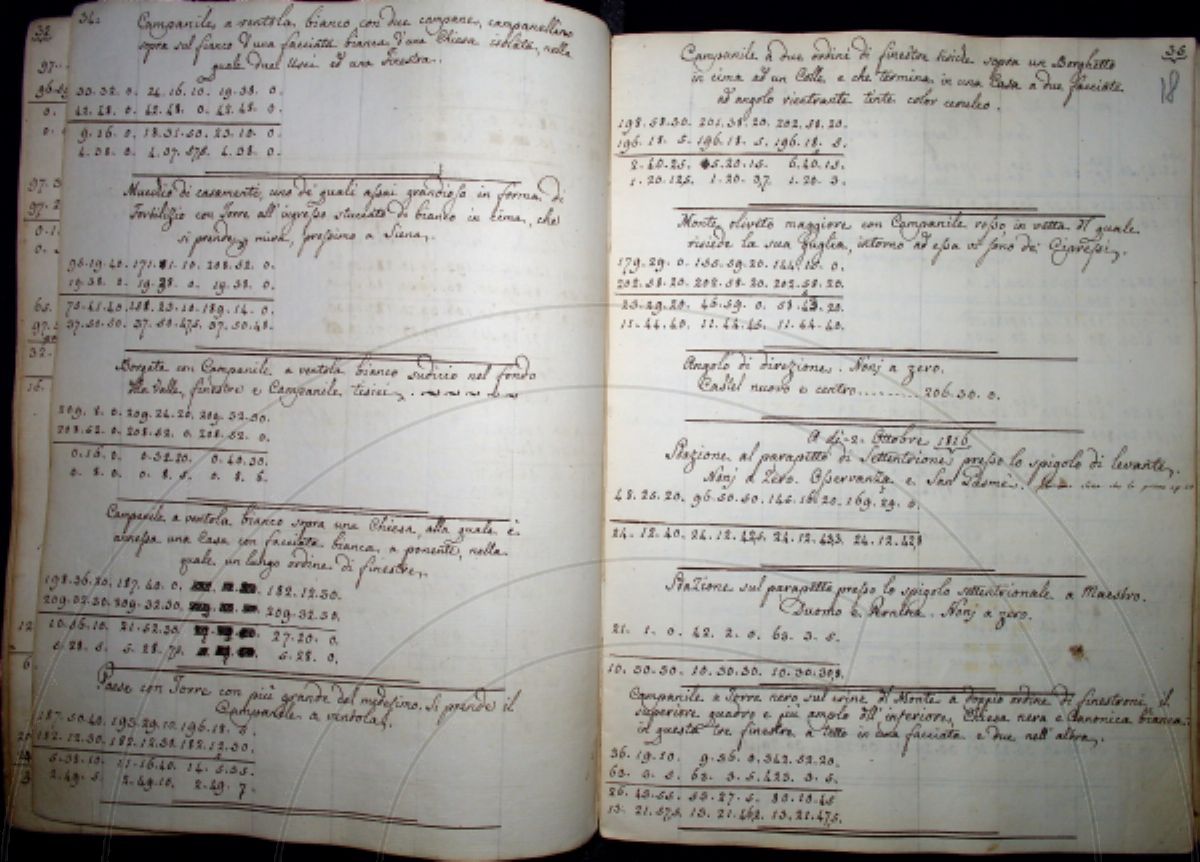 34.
Campanile a ventola bianco con due campane, campanellino
sopra sul fianco d'una facciata bianca d'una Chiesa isolata, nella
quale due Usci ed una finestra.
33.32. 0. 24.16.10. 19.38. 0.
42.48. 0. 42.48. 0. 42.48. 0.
9.16. 0. 18.31.50. 23.10. 0.
4.38. 0. 4.37.575. 4.38. 0.
di casamenti, uno de' quali assai grandioso in forma di
Fortilizio con Torre all'ingresso stuccato di bianco in cima, che
si prende mira, prossimo a Siena.
95.19.40. 171. 1.10. 208.52. 0.
19.38. 0. 19.38. 0. 19.38. 0.
75.41.40. 188.23.10. 189.14. 0.
37.50.50. 37.50.475. 37.50.48.
Borgata con Campanile a ventola bianco sudicio nel fondo
alla Valle, finestre e Campanile tisici.
209. 8. 0. 209.24.20. 209.32.30.
208.52. 0. 208.52. 0. 208.52. 0.
0.16. 0. 0.32.20. 0.40.30.
0. 8. 0. 0. 8. 5. 0. 8. 6.
Campanile a ventola bianco sopra una Chiesa, alla quale è
annessa una Casa con facciata bianca a ponente, nella
quale un lungo ordine di finestre.
198.36.20. 187.40. 0. 182.12.30.
209.32.30. 209.32.30. 209.32.30.
10.56.10. 21.52.30. 27.20. 0.
5.28. 5. 5.28. 75. 5.28. 0.
Paese con Torre con più grande del medesimo. Si prende il
Campanile a ventola.
187.50.40. 193.29.10. 196.18. 5.
182.12.30. 182.12.30. 182.12.30.
5.38.10. 11.16.40. 14. 5.35.
2.49. 5. 2.49.10. 2.49. 7.
36.
18
Campanile a due ordini di finestre tisiche sopra un Borghetto
in cima ad un Colle, e che termina in una Casa a due facciate
ad angolo rientrante tinte color ceruleo.
198.58.30. 201.38.20. 202.58.20.
196.18. 5. 196.18. 5. 196.18. 5.
2.40.25. 5.20.15. 6.40.15.
1.20.125. 1.20. 37. 1.20. 3.
Monte oliveto maggiore con Campanile rosso, in vetta del quale
risiede la sua guglia, intorno ad essa vi sono de' Cipressi.
179.29. 0. 155.59.20. 144.15. 0.
202.58.20. 202.58.20. 202.58.20.
23.29.20. 46.59. 0. 58.43.20.
11.44.40. 11.44.45. 11.44.40.
Angolo di direzione. Nonj a zero.
Castel nuovo e centro.......... 206.30. 0.
A dì 2. Ottobre 1816
Stazione al parapetto di Settentrione presso lo spigolo di levante.
Nonj a Zero. Osservanza e San
48.25.20. 96.50.50. 145.16.20. 169.29. 0.
24.12.40. 24.12.425. 24.12.433. 24.12.428
Stazione sul parapetto presso lo spigolo settentrionale a Maestro.
Duomo e Nonj a zero.
21. 1. 0. 42. 2. 0. 63. 3. 5.
10.30.30. 10.30.30. 10.30.308.
Campanile a Torre nero sul crine del Monte a doppio ordine di finestroni il
superiore quadro e più ampio dell'inferiore, Chiesa nera e Canonica bianca:
in questa tre finestre a tetto in una facciata e due nell'altra.
36.19.10. 9.36. 0. 342.52.20.
63. 3. 5. 63. 3. 5. 423. 3. 5.
26.43.55. 53.27. 5. 80.10.45
13.21.575. 13.21.462. 13.21.475.